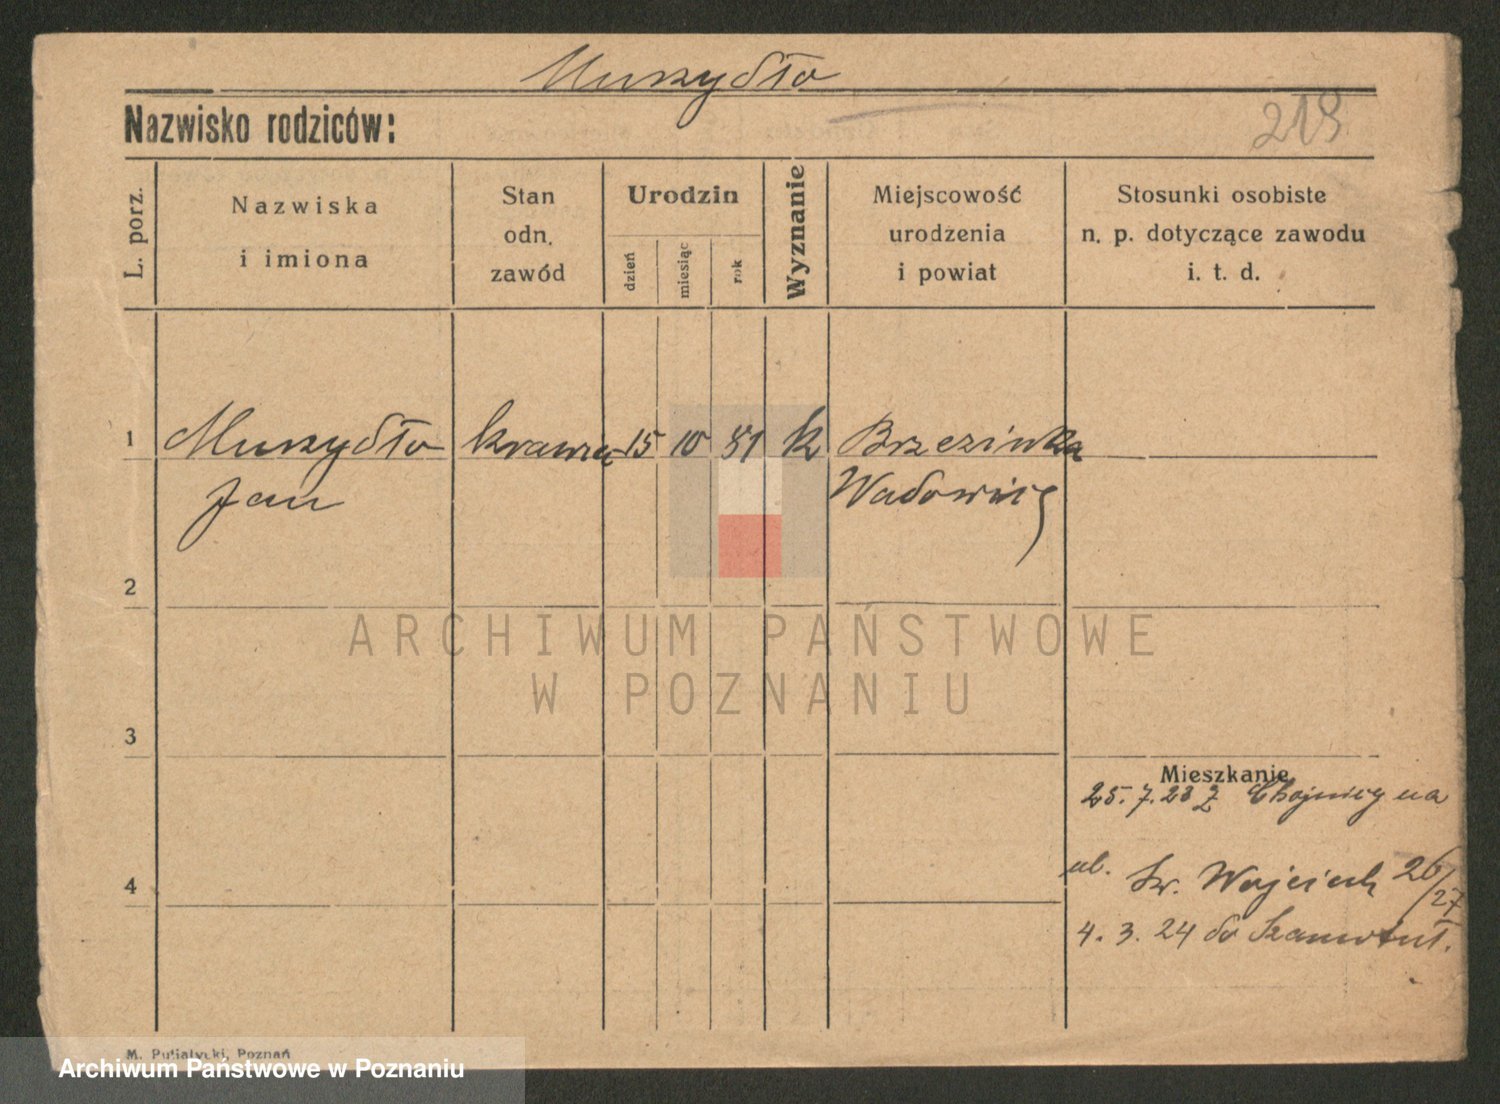 Muszydło
Nazwisko rodziców:
219
L. porz.
Nazwiska
i imiona
Stan
odn.
zawód
Urodzin
dzień
miesiąc
rok
Wyznanie
Miejscowość
urodzenia
i powiat
Stosunki osobiste
n. p. dotyczące zawodu
i. t. d.
1 Muszydło krawiec 15 10 81 k Brzezinka
Jan Wadowice
2
ARCHIWUM PAŃSTWOWE
W POZNANIU
3
Mieszkanie
25. 7. 23 z Chojnicy na
4
ul. Św. Wojciech 26/27
4. 3. 24 do Szamotuł.
M. Putiatycki, Poznań
Archiwum Państwowe w Poznaniu